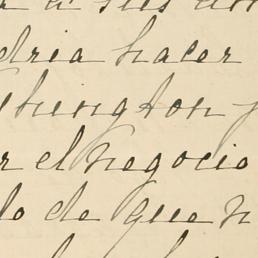 a sus
dria hacer
shington y
r el negocio
do de que n